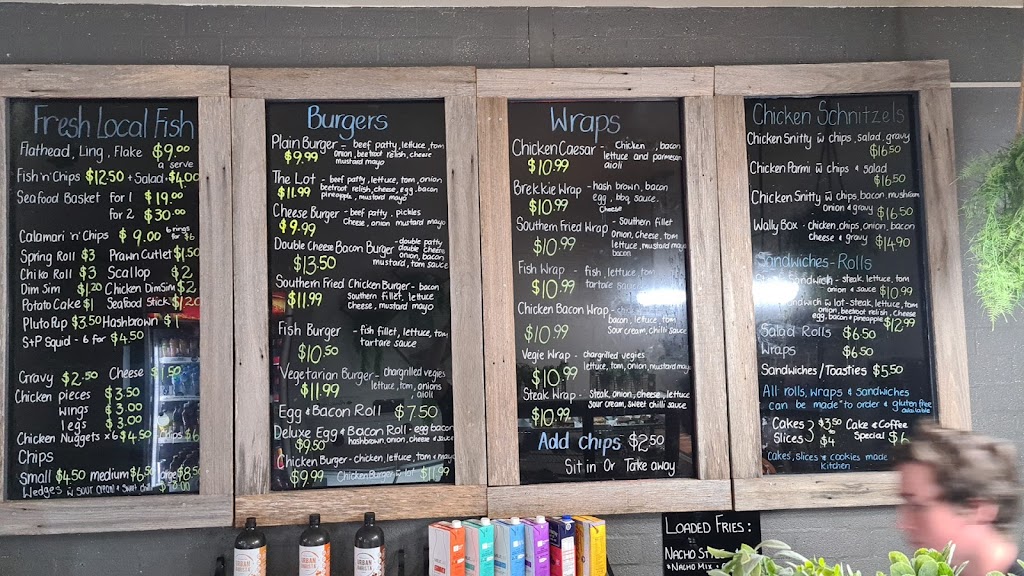 Fresh Local Fish
Flathead, Ling, Flake $9.00
a serve
Fish 'n' Chips $12.50 + Salad + $4.00
Seafood Basket for 1 $19.00
for 2 $30.00
Calamari 'n' Chips $9.00 6 rings for $6
Spring Roll $3 Prawn Cutlet $1.50
Chiko Roll $3 Scallop $2
Dim Sim $1.20 Chicken Dim Sim $2
Potato Cake $1 Seafood Stick $1.20
Pluto Pup $3.50 Hashbrown $1
S+P Squid - 6 for $4.50
Gravy $2.50 Cheese $1.50
Chicken pieces $3.50
wings $3.00
legs $3.00
Chicken Nuggets x 6 $4.50 chips $6
Chips
Small $4.50 medium $6.50 large $8.50
Wedges w sour cream &
Burgers
Plain Burger - beef patty, lettuce, tom
$9.99 onion, beetroot relish, cheese
mustard mayo
The Lot - beef patty, lettuce, tom, onion
$11.99 beetroot relish, cheese, egg, bacon
pineapple, mustard mayo
Cheese Burger - beef patty, pickles
$9.99 Cheese, onion, mustard mayo
Double Cheese Bacon Burger - double patty
double cheese
$13.50 onion, bacon
mustard, tom sauce
Southern Fried Chicken Burger - bacon
$11.99 Southern fillet, lettuce
Cheese, mustard mayo
Fish Burger - fish fillet, lettuce, tom
$10.50 tartare sauce
Vegetarian Burger - chargrilled vegies
$11.99 lettuce, tom, onions
aioli
Egg & Bacon Roll $7.50
Deluxe Egg & Bacon Roll - egg bacon
$9.50 hashbrown, onion, cheese & sauce
Chicken Burger - chicken, lettuce, tom & mayo
$9.99 Chicken Burger & lot $11.99
Wraps
Chicken Caesar - Chicken, bacon
$10.99 lettuce and parmesan
aioli
Brekkie Wrap - hash brown, bacon
$10.99 egg, bbq sauce,
Cheese
Southern Fried Wrap - Southern fillet
$10.99 onion, cheese, tom
lettuce, mustard mayo
Fish Wrap - fish, lettuce, tom
$10.99 tartare sauce
Chicken Bacon Wrap -
$10.99 bacon, lettuce, tom
sour cream, chilli sauce
Vegie Wrap - chargrilled vegies
$10.99 lettuce, tom, onion, mustard mayo
Steak Wrap - Steak, onion, cheese, lettuce
$10.99 Sour cream, sweet chilli sauce
Add chips $2.50
Sit in Or Take away
Chicken Schnitzels
Chicken Snitty w chips, salad, gravy
$16.50
Chicken Parmi w chips & salad
$16.50
Chicken Snitty w chips, bacon, mushroom
onion & gravy $16.50
Wally Box - chicken, chips, onion, bacon
Cheese & gravy $14.90
Sandwiches - Rolls
Sandwich - steak, lettuce, tom
onion & sauce $10.99
Sandwich w lot - steak, lettuce, tom
onion, beetroot relish, Cheese
egg, bacon & pineapple $12.99
Salad Rolls $6.50
Wraps $6.50
Sandwiches / Toasties $5.50
All rolls, wraps & sandwiches
can be made to order & gluten free
available
Cakes $3.50 Cake & Coffee
Slices $4 Special $6
Cakes, slices & cookies made
kitchen
URBAN
URBAN
LOADED FRIES:
NACHO
NACHO MIX